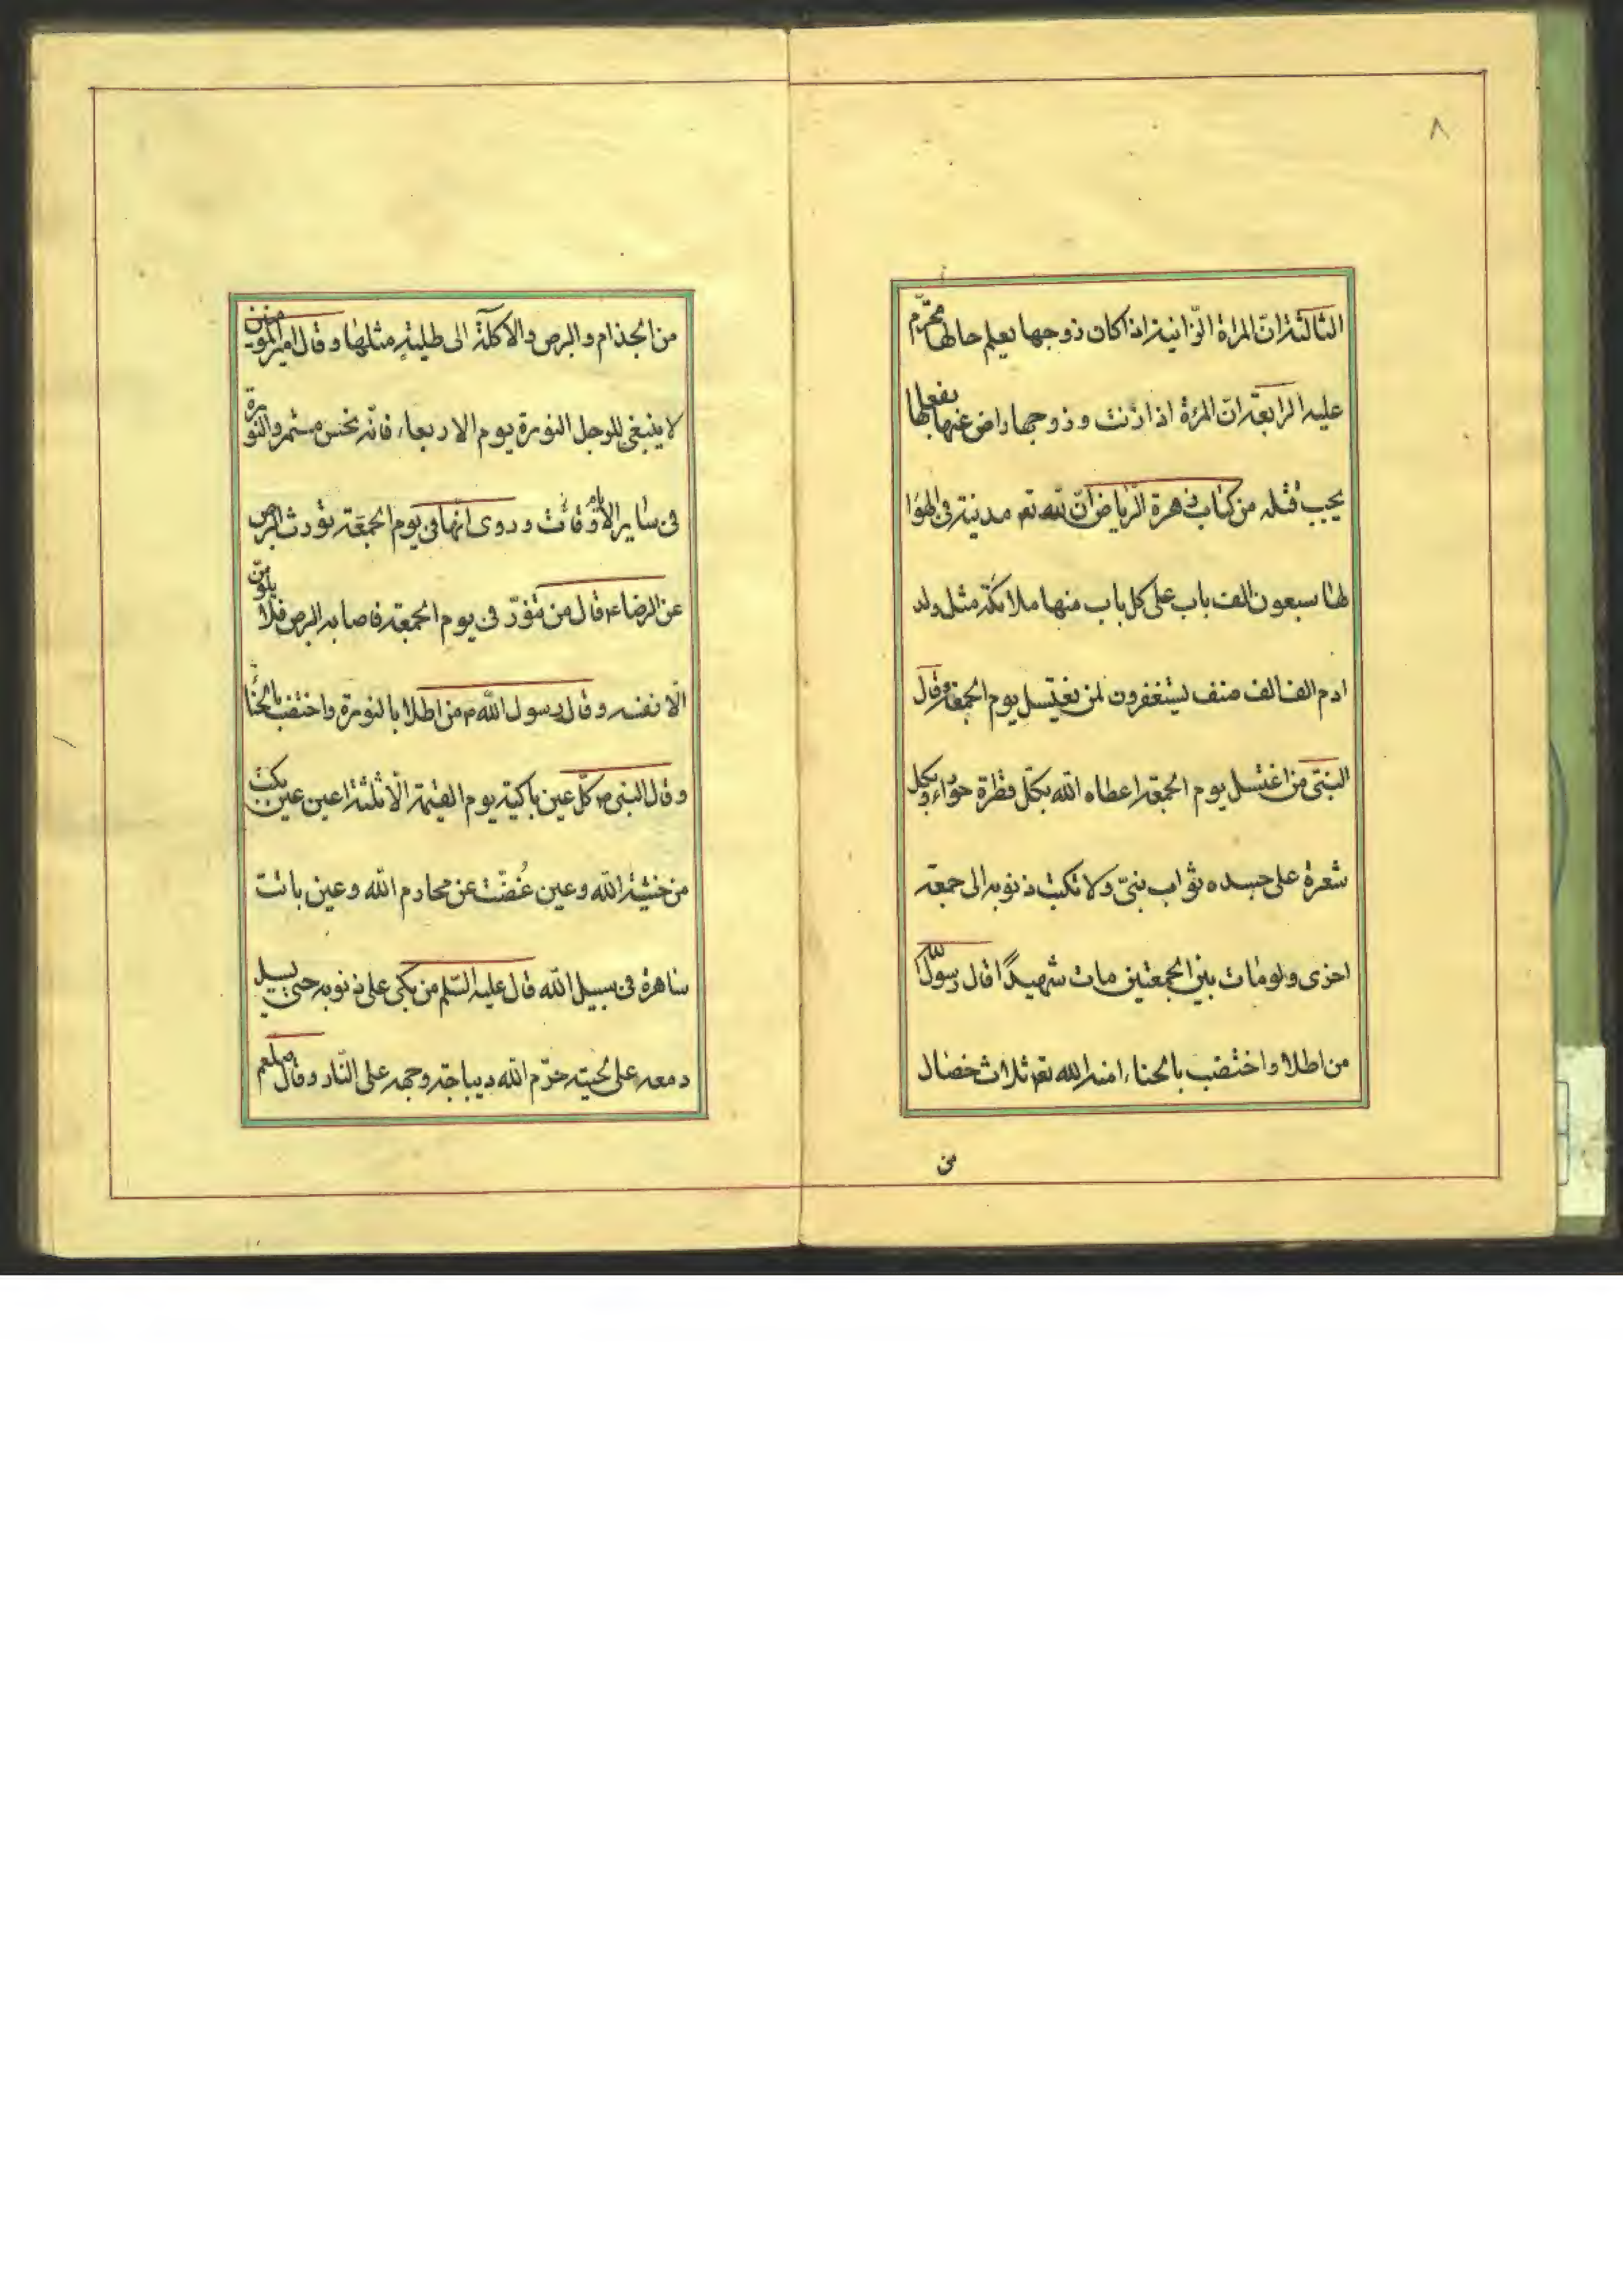 ٨
الثالثة انّ المراة الزّانية اذا كان زوجها يعلم حالها محرّم
عليه الرابعة انّ المرئة اذا زنت و زوجها راض عنها بفعلها
يجب قتله من كتاب زهرة الرّياض انّ لله تع مدينة فى الهوا
لها سبعون الف باب على كل باب منها ملائكة مثل ولد
ادم الف الف صنف ليستغفرون لمن يغتسل يوم الجمعة وقال
النبىّ من اغتسل يوم الجمعة اعطاه الله بكلّ قطرة حوراء و بكل
شعرة على جسده ثواب نبىّ ولا تكتب ذنوبه الى جمعة
اخرى ولو مات بين الجمعتين مات شهيدًا قال رسول الله
من اطلا واختضب بالحناء امنه الله تع ثلاث خصال
من
من الجذام والبرص والاكلة الى طلية مثلها وقال امير المومنين
لا ينبغى للرجل النورة يوم الاربعاء فانّه نحس مستمر والنورة
فى ساير الاوقات وروى انّها فى يوم الجمعة تورث البرص
عن الرضاء قال من تنوّر فى يوم الجمعة فاصابه البرص فلا يلومنّ
الّا نفسه وقال رسول اللّه ص من اطلا بالنورة واختضب بالحناء
وقال النبى ص كلّ عين باكية يوم القيمة الّا ثلثة اعين عين بكت
من خشية اللّه وعين غُضّت عن محارم اللّه وعين باتت
ساهرة فى سبيل اللّه قال عليه السّلم من بكى على ذنوبه حتى يسيل
دمعه على لحيته حرّم اللّه ديباجة وجهه على النّار وقال صلعم